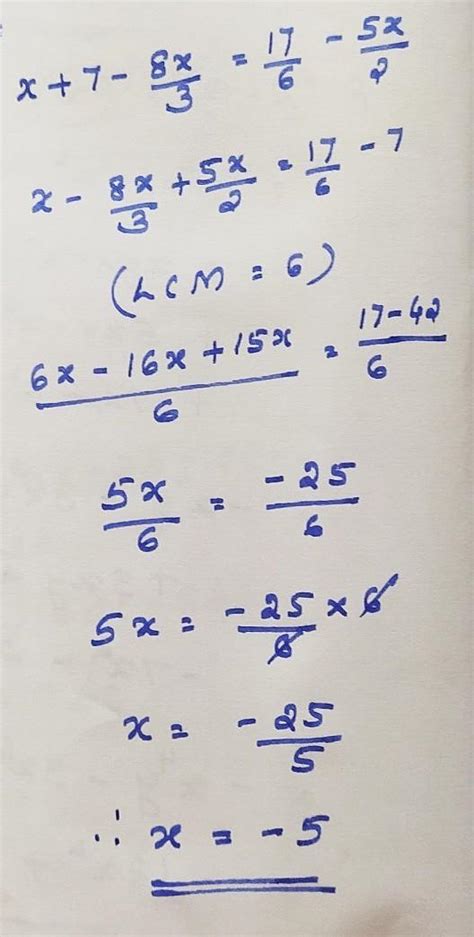 x + 7 - 8x/3 = 17/6 - 5x/2
x - 8x/3 + 5x/2 = 17/6 - 7
(LCM = 6)
6x - 16x + 15x/6 = 17-42/6
5x/6 = -25/6
5x = -25/6 × 6
x = -25/5
∴ x = -5